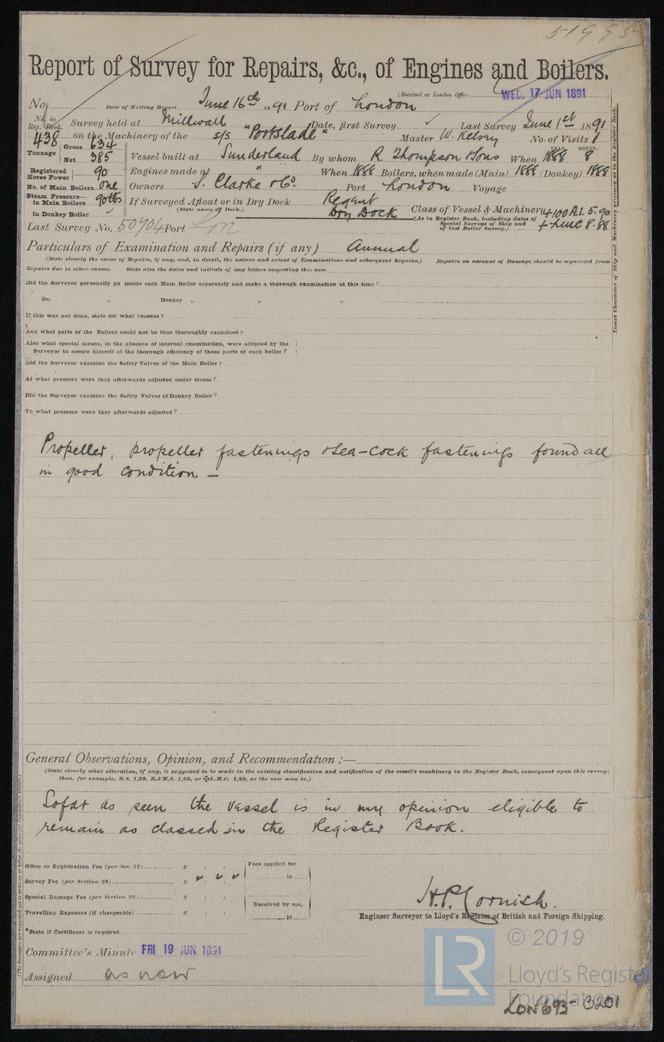 51995
Report of Survey for Repairs, &c., of Engines and Boilers.
(Received at London Office WED. 17 JUN 1891
No. Date of Writing Report June 16th 1891 Port of London
No. in Reg. Book. Survey held at Millwall Date, first Survey Last Survey June 1st 1891
438 on the Machinery of the s/s "Portslade" Master W. Kelsey No. of Visits 1
Tonnage Gross 634 Net 385 Vessel built at Sunderland By whom R. Thompson & Sons When 1888 8
Registered Horse Power 90 Engines made at " When 1888 Boilers, when made (Main) 1888 (Donkey) 1888
No. of Main Boilers one Owners J. Clarke & Co. Port London Voyage
Steam Pressure in Main Boilers 90lbs If Surveyed Afloat or in Dry Dock Regent Dry Dock Class of Vessel & Machinery +100A1. 5.90
(State name of Dock.)
(As in Register Book, including dates of Special Surveys of Ship and of last Boiler Survey.)
+LMC 8.88
in Donkey Boiler
Last Survey No. 50904 Port Lon
Particulars of Examination and Repairs (if any) Annual
(State clearly the cause of Repairs, if any, and, in detail, the nature and extent of Examinations and subsequent Repairs,) Repairs on account of Damage should be separated from
Repairs due to other causes. State also the dates and initials of any letters respecting this case
Did the Surveyor personally go inside each Main Boiler separately and make a thorough examination at this time?
Do. " Donkey " " "
If this was not done, state for what reasons?
And what parts of the Boilers could not be thus thoroughly examined?
Also what special means, in the absence of internal examination, were adopted by the
Surveyor to assure himself of the thorough efficiency of those parts of each boiler?
Did the Surveyor examine the Safety Valves of the Main Boiler?
At what pressure were they afterwards adjusted under steam?
Did the Surveyor examine the Safety Valves of Donkey Boiler?
To what pressure were they afterwards adjusted?
Propeller, propeller fastenings & sea-cock fastenings found all
in good condition —
General Observations, Opinion, and Recommendation:—
(State clearly what alteration, if any, is suggested to be made to the existing classification and notification of the vessel's machinery in the Register Book, consequent upon this survey;
thus, for example, B.S. 1,89, B.&M.S. 1,89, or L.M.C. 1,89, as the case may be.)
So far as seen the vessel is in my opinion eligible to
remain as classed in the Register Book.
Office or Registration Fee (per Sec. 27) £ : : Fees applied for
Survey Fee (per Section 28) £ 18
Special Damage Fee (per Section 28) £ : : Received by me,
Travelling Expenses (if chargeable) £ : : 18
*State if Certificate is required
H.P. Cornish.
Engineer Surveyor to Lloyd's Register of British and Foreign Shipping.
Committee's Minute FRI 19 JUN 1891
Assigned as now
LR © 2019
Lloyd's Register
Foundation
LON 693-0201